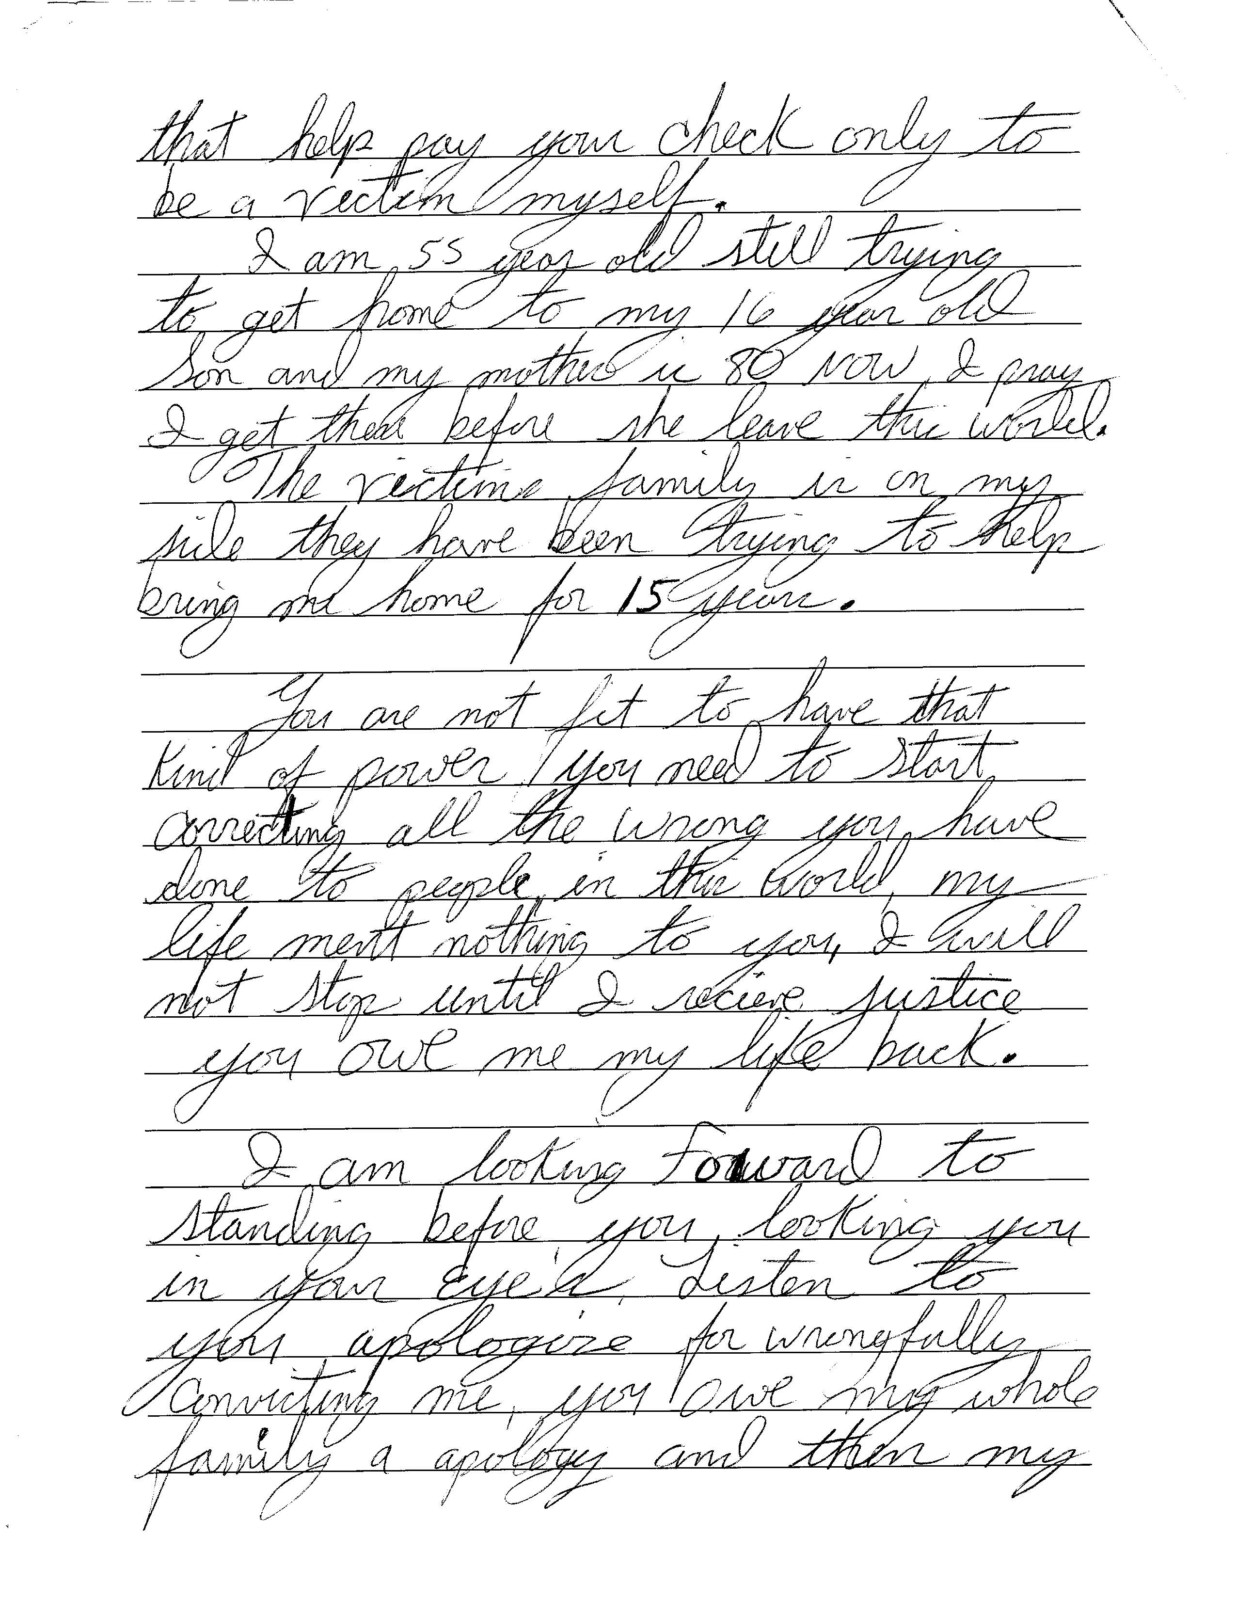 that help pay your check only to
be a victim myself.
I am 55 year old still trying
to get home to my 16 year old
Son and my mother is 80 NOW, I pray
I get there before she leave this world.
The victims family is on my
side they have been trying to help
bring me home for 15 years.
You are not fit to have that
Kind of power, you need to start
Correcting all the wrong you have
done to people in this world, my
life ment nothing to you, I will
not stop until I recieve justice
you owe me my life back.
I am looking Forward to
Standing before you, looking you
in your Eye's, Listen to
you apologize for wrongfully
Convicting me, you owe my whole
family a apology and then my